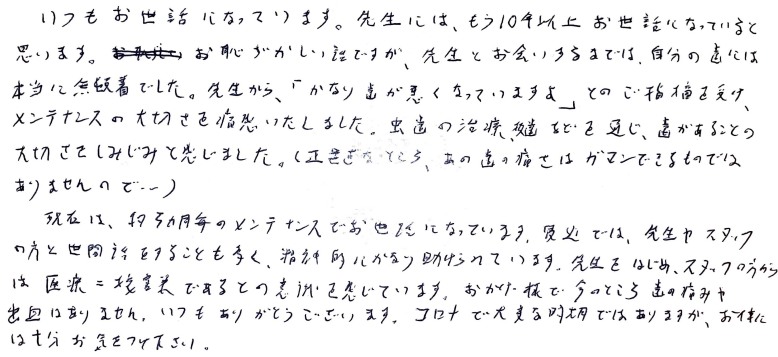 いつもお世話になっています。先生には、もう10年以上お世話になっていると
思います。お恥ずかしい話ですが、先生とお会いするまでは、自分の歯には
本当に無頓着でした。先生から、「かなり歯が悪くなっていますよ」とのご指摘を受け、
メンテナンスの大切さを痛感いたしました。虫歯の治療、抜歯などを通じ、歯があることの
大切さをしみじみと感じました。(正直なところ、あの歯の痛さはガマンできるものでは
ありませんので…)
現在は、約3カ月毎のメンテナンスでお世話になっています。最近では、先生やスタッフ
の方と世間話をすることも多く、精神的にかなり助けられています。先生をはじめ、スタッフの方から
は医療=接客業であるとの意識を感じています。おかげ様で今のところ歯の痛みや
出血はありません。いつもありがとうございます。コロナで大変な時期ではありますが、お体に
は十分お気をつけ下さい。